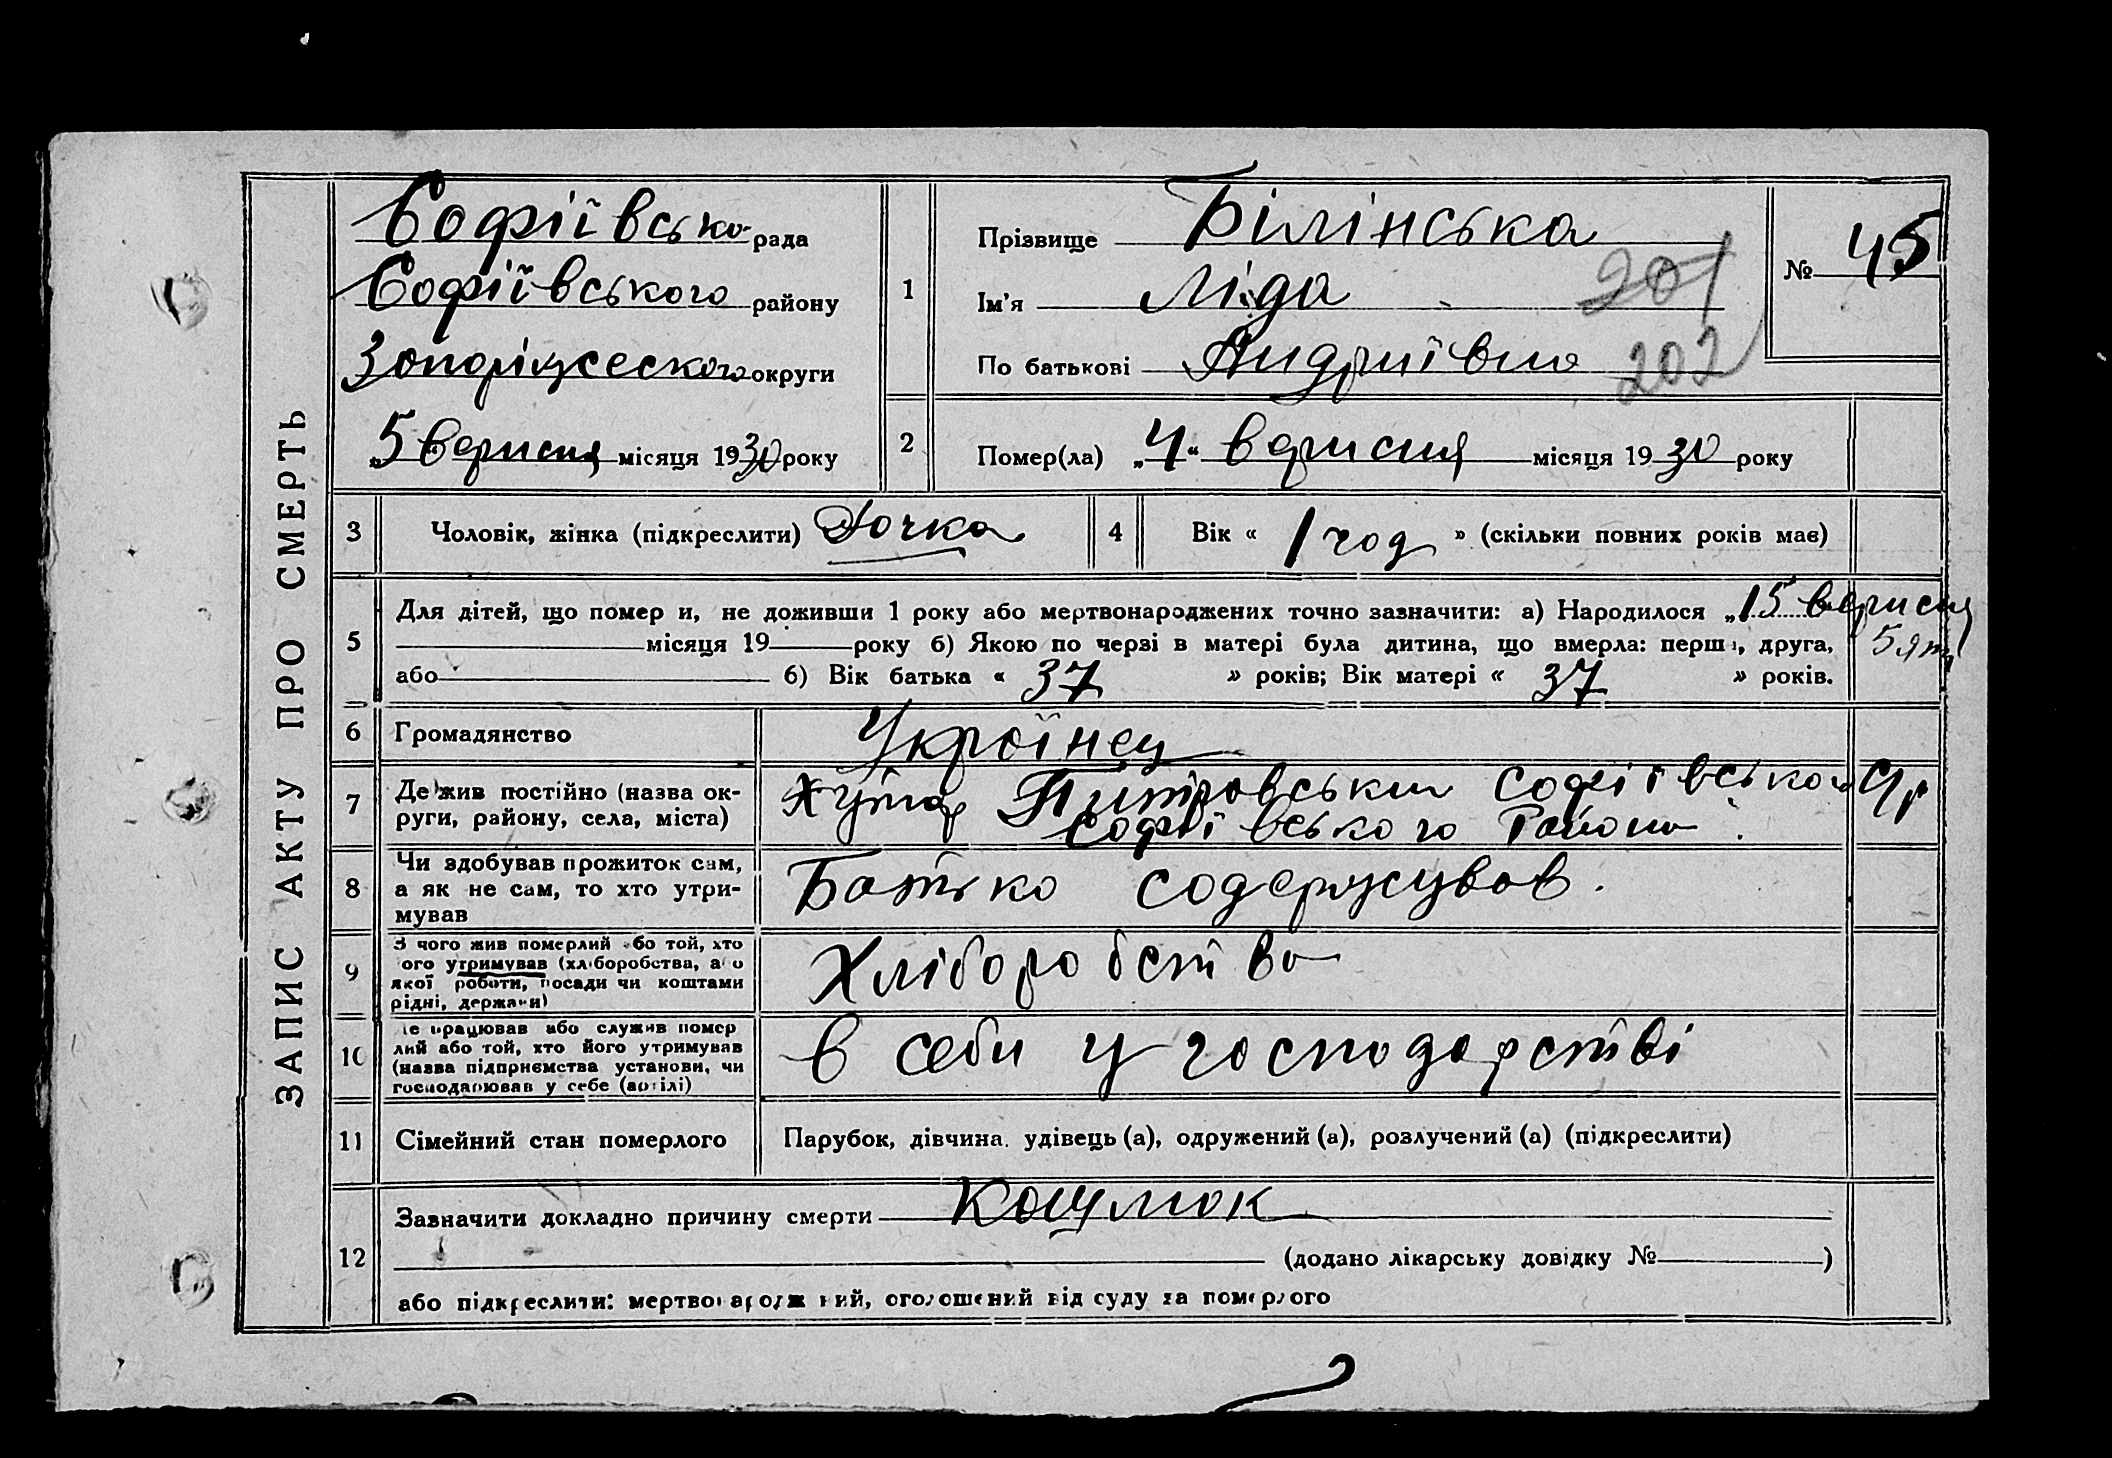 ЗАПИС АКТУ ПРО СМЕРТЬ
Софіївська рада
Софіївського району
округи
„5 вересня місяця 1930 року
1
Прізвище Білінська
Ім'я Ліда
По батькові Андриївна
201
202
№ 45
2
Помер(ла) „4“ вересня місяця 1930 року
3
Чоловік, жінка (підкреслити) Дочка
4
Вік « 1 год » (скільки повних років має)
5
Для дітей, що помер и, не доживши 1 року або мертвонароджених точно зазначити: а) Народилося „15 вересня
місяця 19 року б) Якою по черзі в матері була дитина, що вмерла: перша, друга, 5 ят
або б) Вік батька « 37 » років; Вік матері « 37 » років.
6
Громадянство
Україінец
7
Де жив постійно (назва ок-
руги, району, села, міста)
Хутор Питровськи Софіївської
Софіївського Району
8
Чи здобував прожиток сам,
а як не сам, то хто утри-
мував
Батько содержував.
9
З чого жив померлий або той, хто
ого утримував (хліборобства, або
якої роботи, посади чи коштами
рідні, держави)
Хліборобства
10
Де працював або служив помер
лий або той, хто його утримував
(назва підприємства установи, чи
господарював у себе (артілі)
в себи у господарстві
11
Сімейний стан померлого
Парубок, дівчина, удівець (а), одружений (а), розлучений (а) (підкреслити)
12
Зазначити докладно причину смерти Кашлюк
(додано лікарську довідку № )
або підкреслити: мертвонароджений, оголошений від суду за померлого